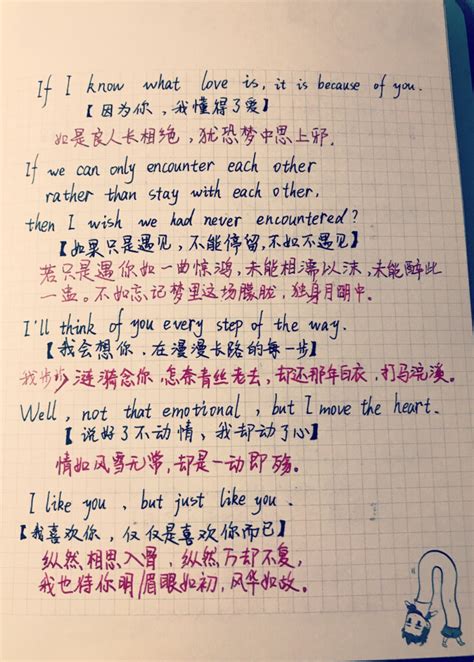 If I know what love is, it is because of you.
【因为你，我懂得了爱】
如是良人长相绝，犹恐梦中思上邪.
If we can only encounter each other
rather than stay with each other,
then I wish we had never encountered?
【如果只是遇见，不能停留,不如不遇见】
若只是遇你如一曲惊鸿，未能相濡以沫，未能醉此
一盏。不如忘记梦里这场朦胧，独身月明中。
I'll think of you every step of the way.
【我会想你，在漫漫长路的每一步】
我步步涟漪念你，怎奈青丝老去，却还那年白衣，打马浣溪。
Well, not that emotional, but I move the heart.
【说好了不动情，我却动了心】
情如风雪无常，却是一动即殇。
I like you, but just like you.
【我喜欢你，仅仅是喜欢你而已】
纵然相思入骨，纵然万却不复，
我也待你明眉眼如初，风华如故。